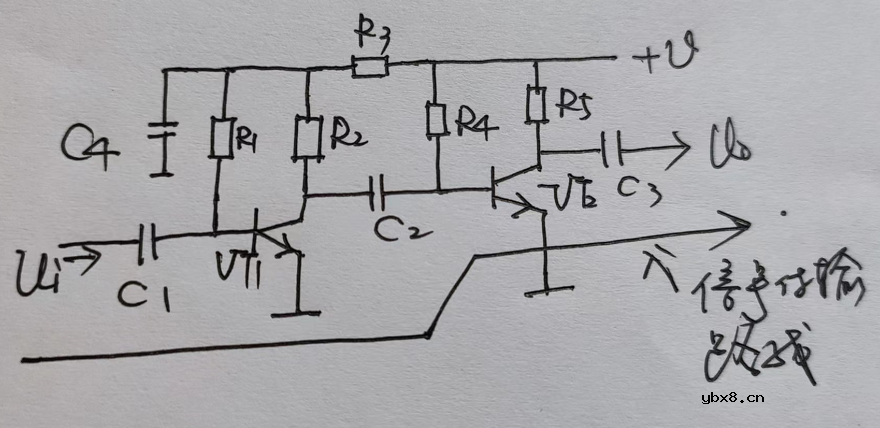 R3
+U
C4
R1
R2
R4
R5
Uo
C3
VT2
C2
Ui
C1
VT1
信号传输
路线
ybx8.cn